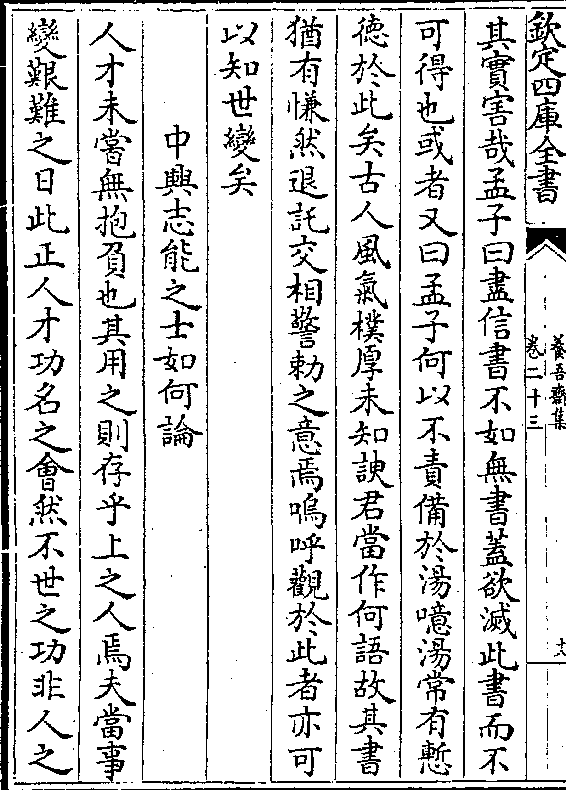 欽定四庫全書
養吾齋集
卷二十三
其實害哉孟子曰盡信書不如無書蓋欲滅此書而不
可得也或者又曰孟子何以不責備於湯噫湯常有慙
徳於此矣古人風氣樸厚未知諛君當作何語故其書
猶有慊然退託交相警勅之意焉嗚呼觀於此者亦可
以知世變矣
中興志能之士如何論
人才未嘗無抱負也其用之則存乎上之人焉夫當事
變艱難之日此正人才功名之會然不世之功非人之